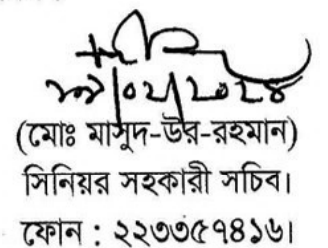 (মোঃ মাসুদ-উর-রহমান)
সিনিয়র সহকারী সচিব।
ফোন : ২২৩৩৫৭৪১৬।